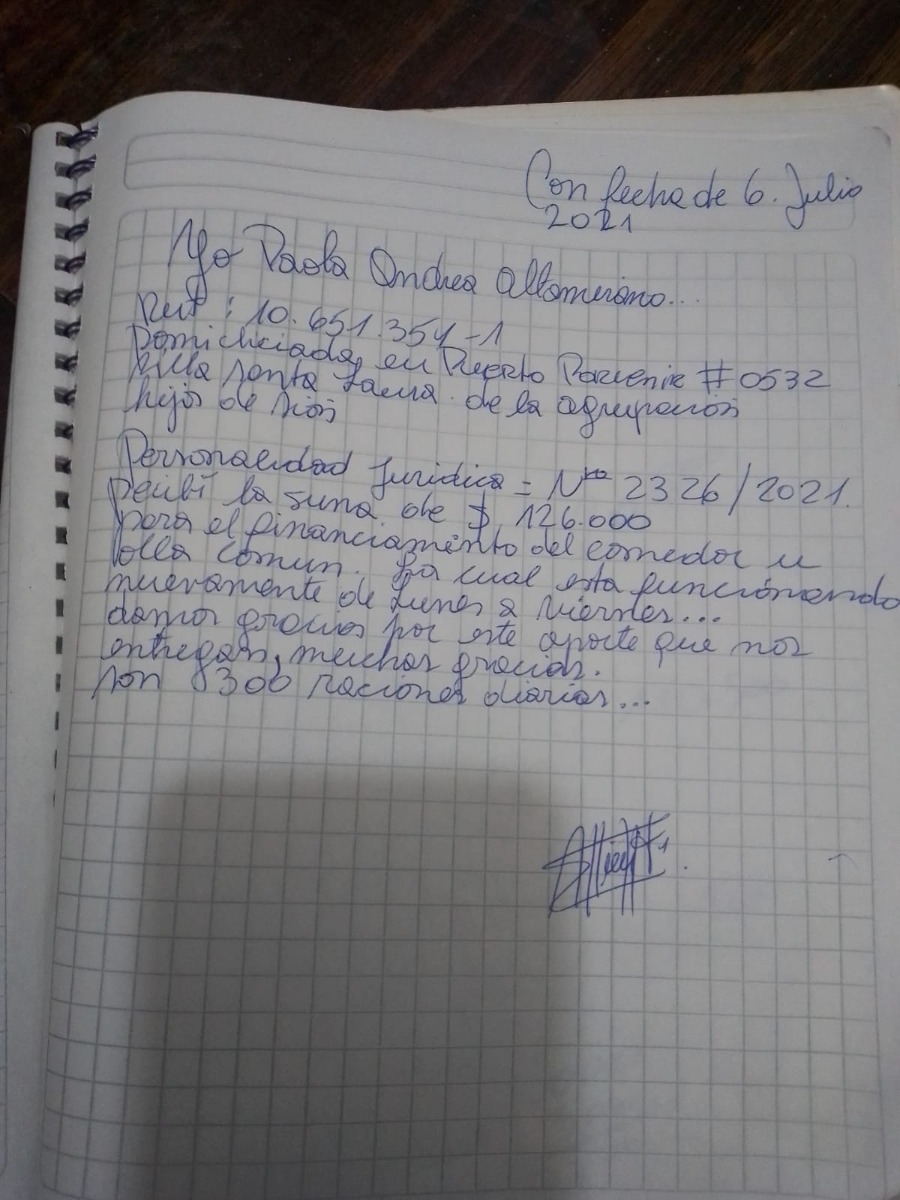 Con fecha de 6. Julio
2021
Yo Paola Andrea Altamirano...
Rut : 10.651.354-1
Domiciliada en Puerto Porvenir # 0532
Villa Santa Laura. de la agrupación
hijos de Dios
Personalidad Juridica = Nro 2326/2021.
Recibí la suma de $ 126.000
para el financiamiento del comedor u
olla comun. La cual esta funcionando
nuevamente de Lunes a viernes...
damos gracias por este aporte que nos
entregan, muchas gracias.
son 300 raciones diarias...